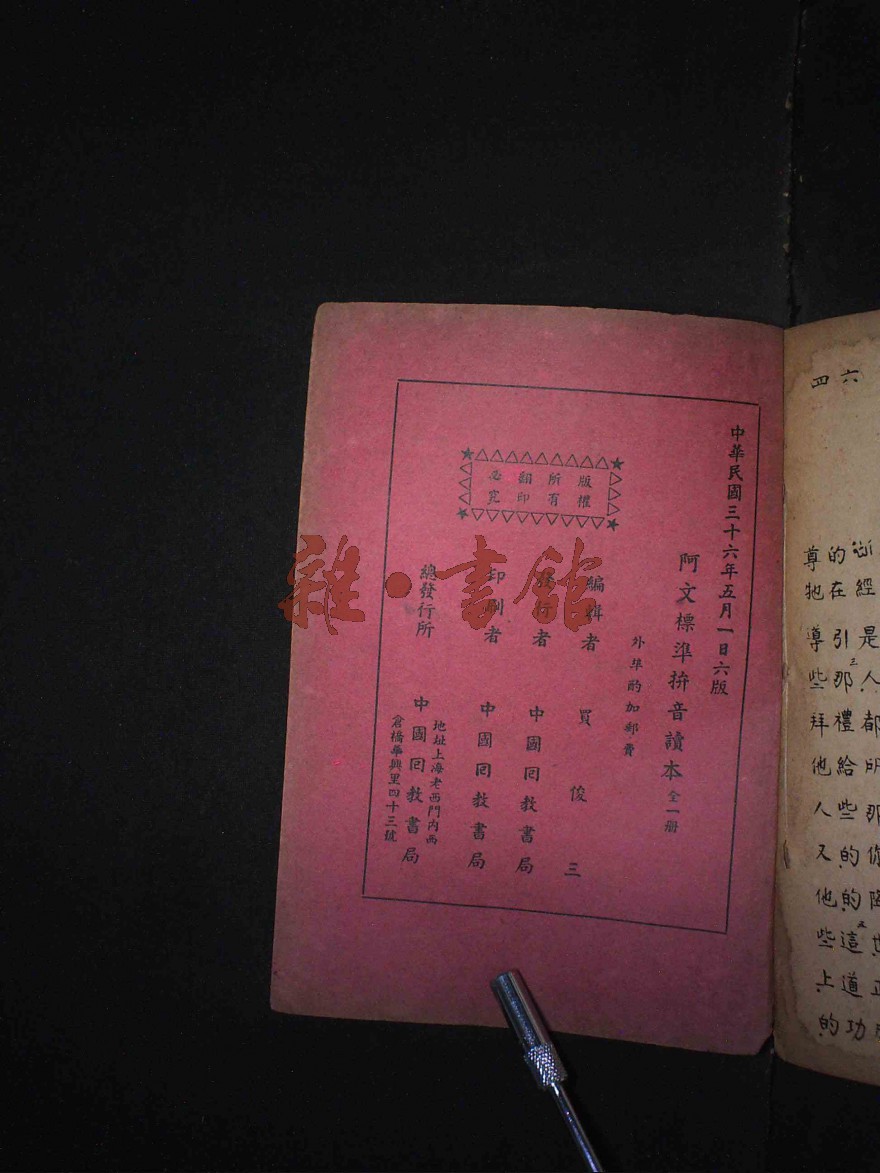 中華民國三十六年五月一日六版
阿文標準拚音讀本 全一册
外埠酌加郵費
編輯者 買俊三
發行者 中國回教書局
印刷者 中國回教書局
總發行所 中國回教書局
地址上海老西門內西
倉橋華興里四十三號
版權
所有
翻印
必究
雜·書館
六四
經
是
人都
的在引那禮給些的的這道功
尊牠導些拜他人又他些上的